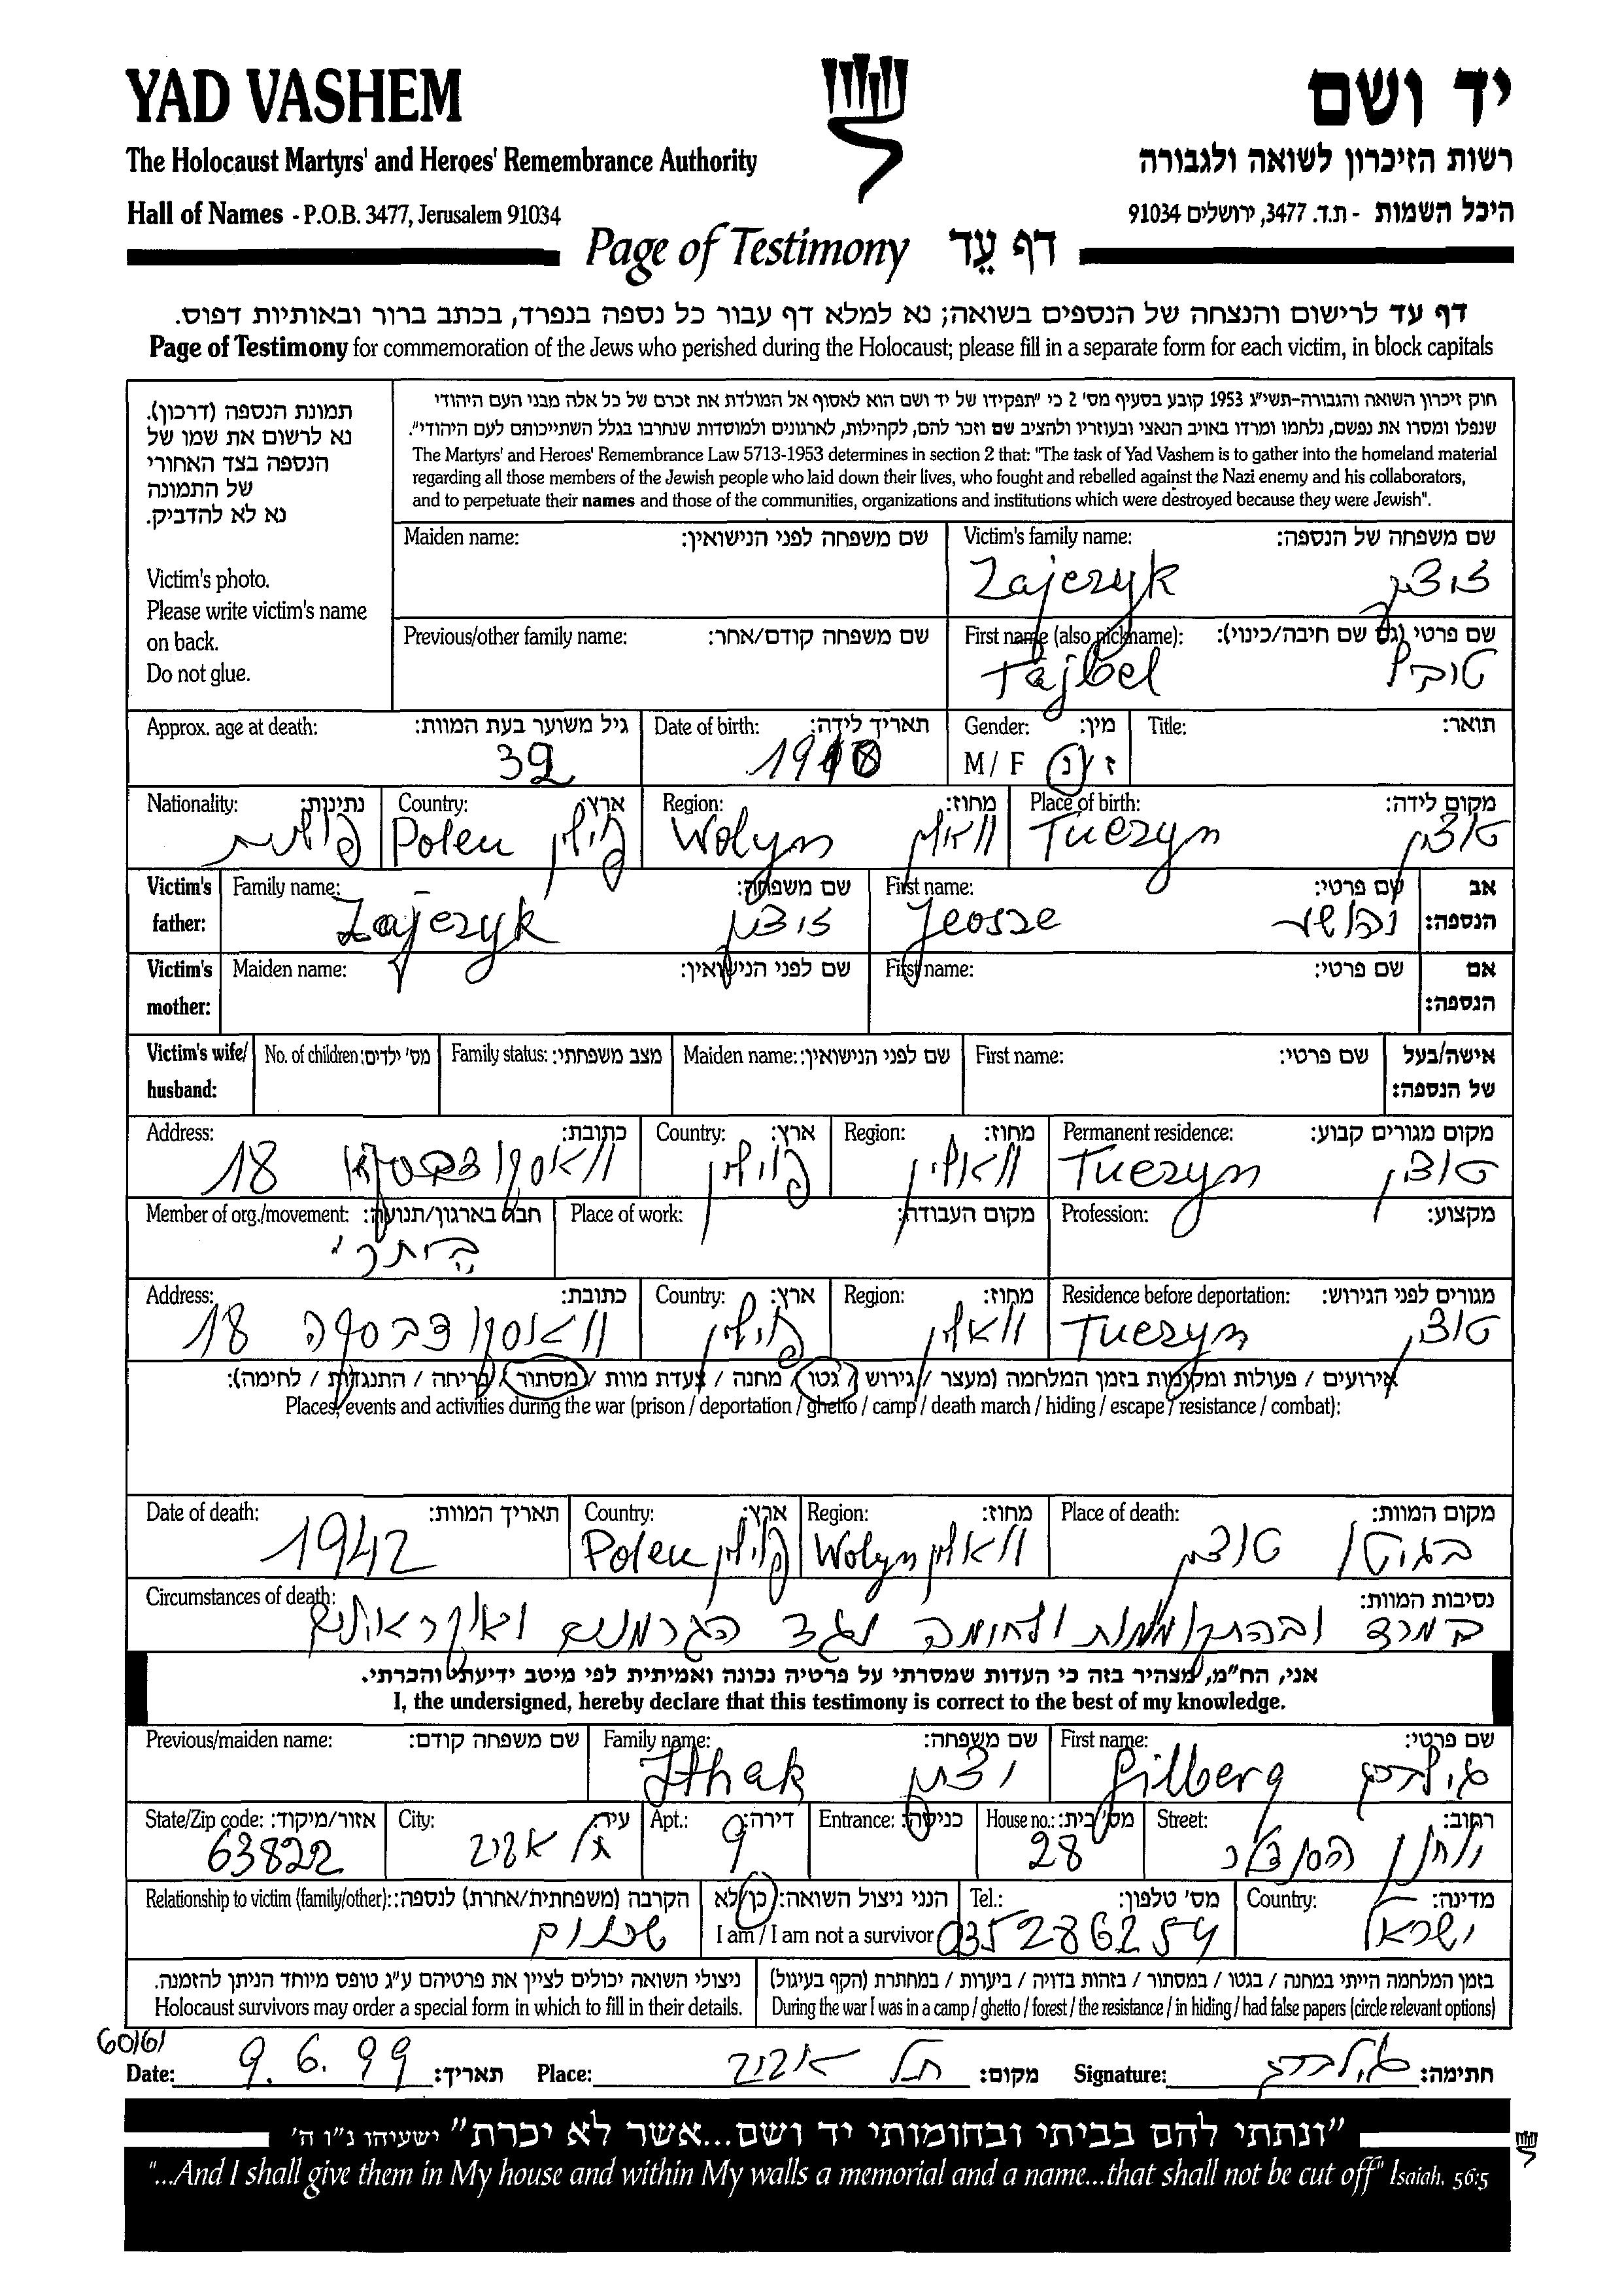 YAD VASHEM
יד ושם
The Holocaust Martyrs' and Heroes' Remembrance Authority
רשות הזיכרון לשואה ולגבורה
Hall of Names - P.O.B. 3477, Jerusalem 91034
היכל השמות - ת.ד. 3477, ירושלים 91034
Page of Testimony דף עֵד
דף עד לרישום והנצחה של הנספים בשואה; נא למלא דף עבור כל נספה בנפרד, בכתב ברור ובאותיות דפוס.
Page of Testimony for commemoration of the Jews who perished during the Holocaust; please fill in a separate form for each victim, in block capitals
תמונת הנספה (דרכון).
נא לרשום את שמו של
הנספה בצד האחורי
של התמונה
נא לא להדביק.
Victim's photo.
Please write victim's name
on back.
Do not glue.
חוק זיכרון השואה והגבורה-תשי"ג 1953 קובע בסעיף מס' 2 כי "תפקידו של יד ושם הוא לאסוף אל המולדת את זכרם של כל אלה מבני העם היהודי
שנפלו ומסרו את נפשם, נלחמו ומרדו באויב הנאצי ובעוזריו ולהציב שם וזכר להם, לקהילות, לארגונים ולמוסדות שנחרבו בגלל השתייכותם לעם היהודי".
The Martyrs' and Heroes' Remembrance Law 5713-1953 determines in section 2 that: "The task of Yad Vashem is to gather into the homeland material
regarding all those members of the Jewish people who laid down their lives, who fought and rebelled against the Nazi enemy and his collaborators,
and to perpetuate their names and those of the communities, organizations and institutions which were destroyed because they were Jewish".
Maiden name: שם משפחה לפני הנישואין:
Victim's family name: שם משפחה של הנספה:
Zajczyk
Previous/other family name: שם משפחה קודם/אחר:
First name (also nickname): שם פרטי (גם שם חיבה/כינוי):
Tajbel טובל
Approx. age at death: גיל משוער בעת המוות:
32
Date of birth: תאריך לידה:
1910
Gender: מין:
M / F ז / נ
Title: תואר:
Nationality: נתינות:
פולנית
Country: ארץ:
Polen פולין
Region: מחוז:
Wolyn וואלין
Place of birth: מקום לידה:
Tuczyn טוצין
Victim's father:
Family name: שם משפחה:
Zajczyk
First name: שם פרטי:
Jeosze
אב הנספה:
Victim's mother:
Maiden name: שם לפני הנישואין:
First name: שם פרטי:
אם הנספה:
Victim's wife/ husband:
No. of children: מס' ילדים:
Family status: מצב משפחתי:
Maiden name: שם לפני הנישואין:
First name: שם פרטי:
אישה/בעל של הנספה:
Address: כתובת:
18
Country: ארץ:
פולין
Region: מחוז:
וואלין
Permanent residence: מקום מגורים קבוע:
Tuczyn טוצין
Member of org./movement: חבר בארגון/תנועה:
Place of work: מקום העבודה:
Profession: מקצוע:
Address: כתובת:
18
Country: ארץ:
פולין
Region: מחוז:
וואלין
Residence before deportation: מגורים לפני הגירוש:
Tuczyn טוצין
אירועים / פעולות ומקומות בזמן המלחמה (מעצר / גירוש / גטו / מחנה / צעדת מוות / מסתור / בריחה / התנגדות / לחימה):
Places, events and activities during the war (prison / deportation / ghetto / camp / death march / hiding / escape / resistance / combat):
Date of death: תאריך המוות:
1942
Country: ארץ:
Polen פולין
Region: מחוז:
Wolyn וואלין
Place of death: מקום המוות:
בגיטו טוצין
Circumstances of death: נסיבות המוות:
במרד ובהתקוממות ולחומה נגד הגרמנים ואוקראינים
אני, הח"מ, מצהיר בזה כי העדות שמסרתי על פרטיה נכונה ואמיתית לפי מיטב ידיעתי והכרתי.
I, the undersigned, hereby declare that this testimony is correct to the best of my knowledge.
Previous/maiden name: שם משפחה קודם:
Family name: שם משפחה:
Ithak
First name: שם פרטי:
Gilberg גילברג
State/Zip code: אזור/מיקוד:
63822
City: עיר:
תל אביב
Apt.: דירה:
9
Entrance: כניסה:
House no.: מס' בית:
28
Street: רחוב:
Relationship to victim (family/other): הקרבה (משפחתית/אחרת) לנספה:
הנני ניצול השואה: כן/לא
I am / I am not a survivor
Tel.: מס' טלפון:
035286254
Country: מדינה:
ישראל
ניצולי השואה יכולים לציין את פרטיהם ע"ג טופס מיוחד הניתן להזמנה.
Holocaust survivors may order a special form in which to fill in their details.
בזמן המלחמה הייתי במחנה / בגטו / במסתור / בזהות בדויה / ביערות / במחתרת (הקף בעיגול)
During the war I was in a camp / ghetto / forest / the resistance / in hiding / had false papers (circle relevant options)
Date: 9. 6. 99 תאריך:
Place: תל אביב מקום:
Signature: גילברג חתימה:
"ונתתי להם בביתי ובחומותי יד ושם...אשר לא יכרת" ישעיהו נ"ו ה'
"...And I shall give them in My house and within My walls a memorial and a name...that shall not be cut off" Isaiah. 56:5